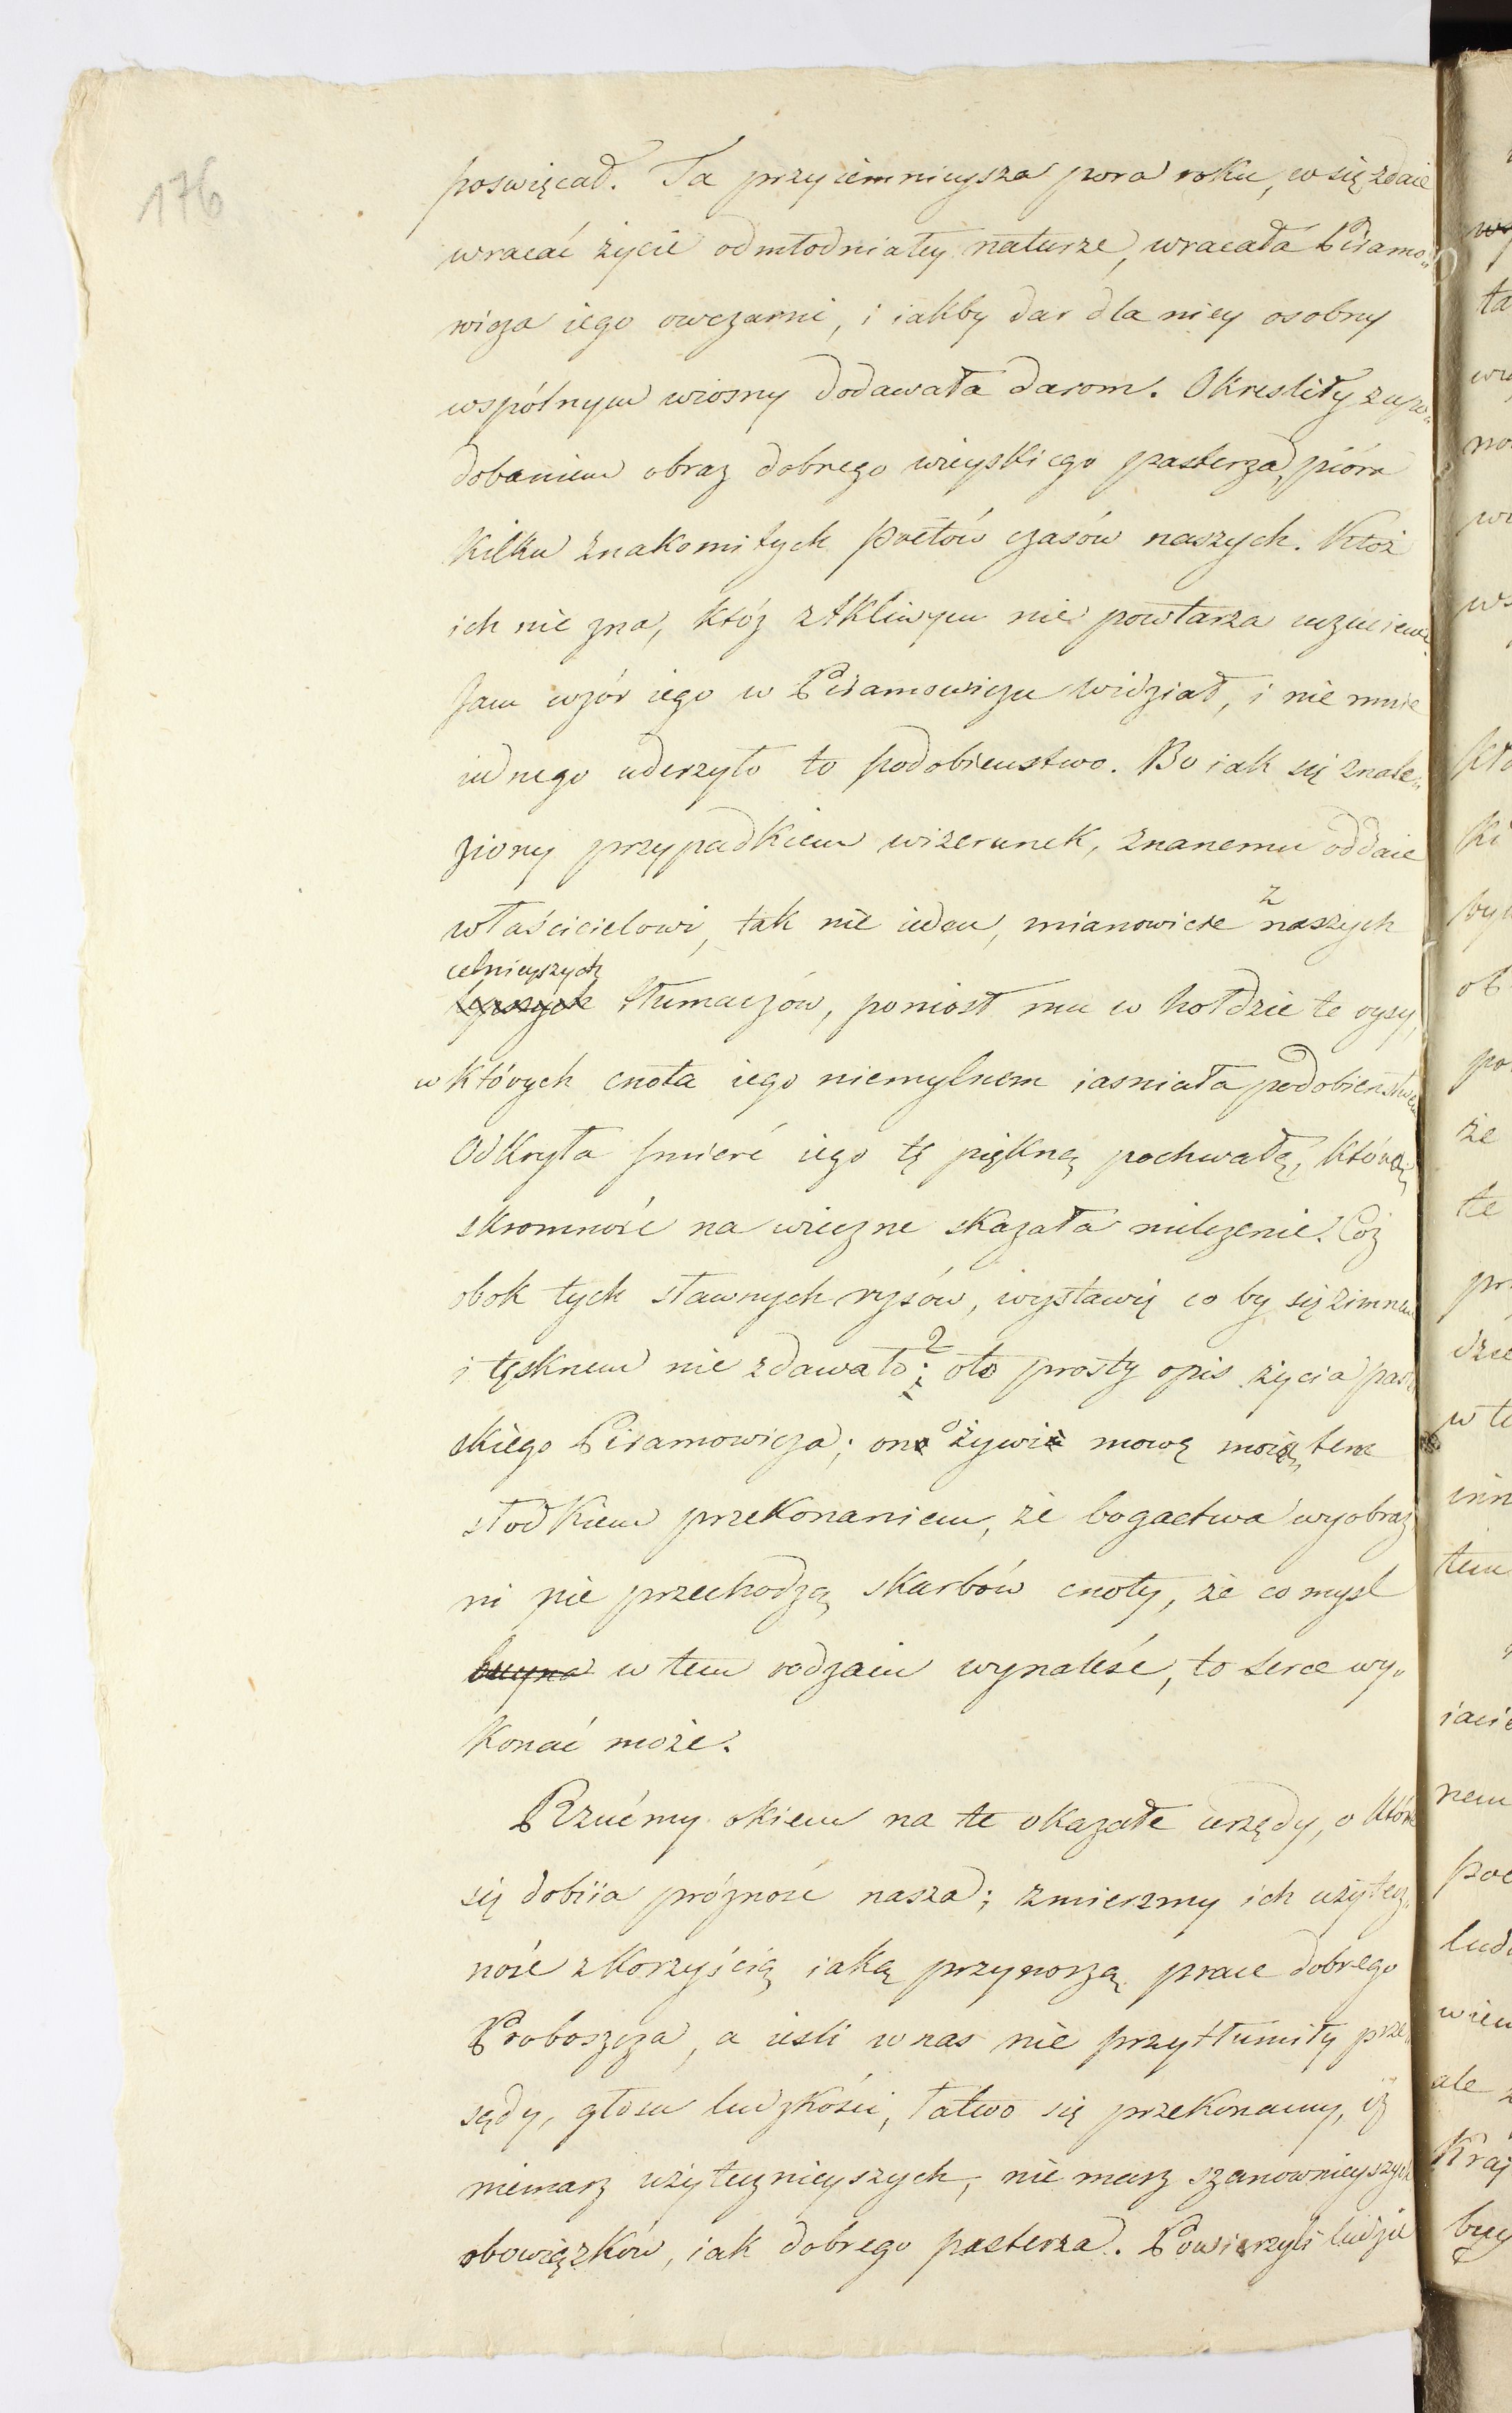 176
poswięcał. Ta przyiemnieysza pora roku, co się zdaie
wracać życie odmłodniałey naturze, wracała Piramo„
wicza iego owczarni, i iakby dar dla niey osobny
wspólnym wiosny dodawała darom. Okresliły z upo„
dobaniem obraz dobrego wieyskiego pasterza, pióra
kilku znakomitych poetów czasów naszych. Któż
ich nie zna, któż z tkliwym nie powtarza uczuciem
Jam wzór iego w Piramowiczu widział, i nie mnie
iednego uderzyło to podobieństwo. Bo iak się znale„
ziony przypadkiem wizerunek, znanemu oddaie
właścicielowi, tak nie ieden, mianowicie z naszych
celnieyszych
tłumaczów, poniosł mu w hołdzie te rysy,
w których cnota iego niemylnem iasniała podobieństwem
Odkryła smierć iego tę piękną pochwałę, którą
skromność na wieczne skazała milczenie. Cóż
obok tych sławnych rysów, wystawię co by się zimnem
i tęsknem nie zdawało? oto prosty opis życia past
skiego Piramowicza; on ożywi mowę moię tem
słodkiem przekonaniem, że bogactwa wyobraź
ni nie przechodzą skarbów cnoty, że co mysl
buyna w tem rodzaiu wynaleść, to serce wy„
konać może.
Rzućmy okiem na te okazałe urzędy, o które
się dobiia próżność nasza; zmierzmy ich użytecz„
ność z korzyścią iaką przynoszą prace dobrego
Proboszcza, a iesli w nas nie przytłumiły prze„
sądy, głosu ludzkości, łatwo się przekonamy, iż
niemasz użytecznieyszych, nie masz szanownieyszych
obowiązków, iak dobrego pasterza. Powierzyli ludzie